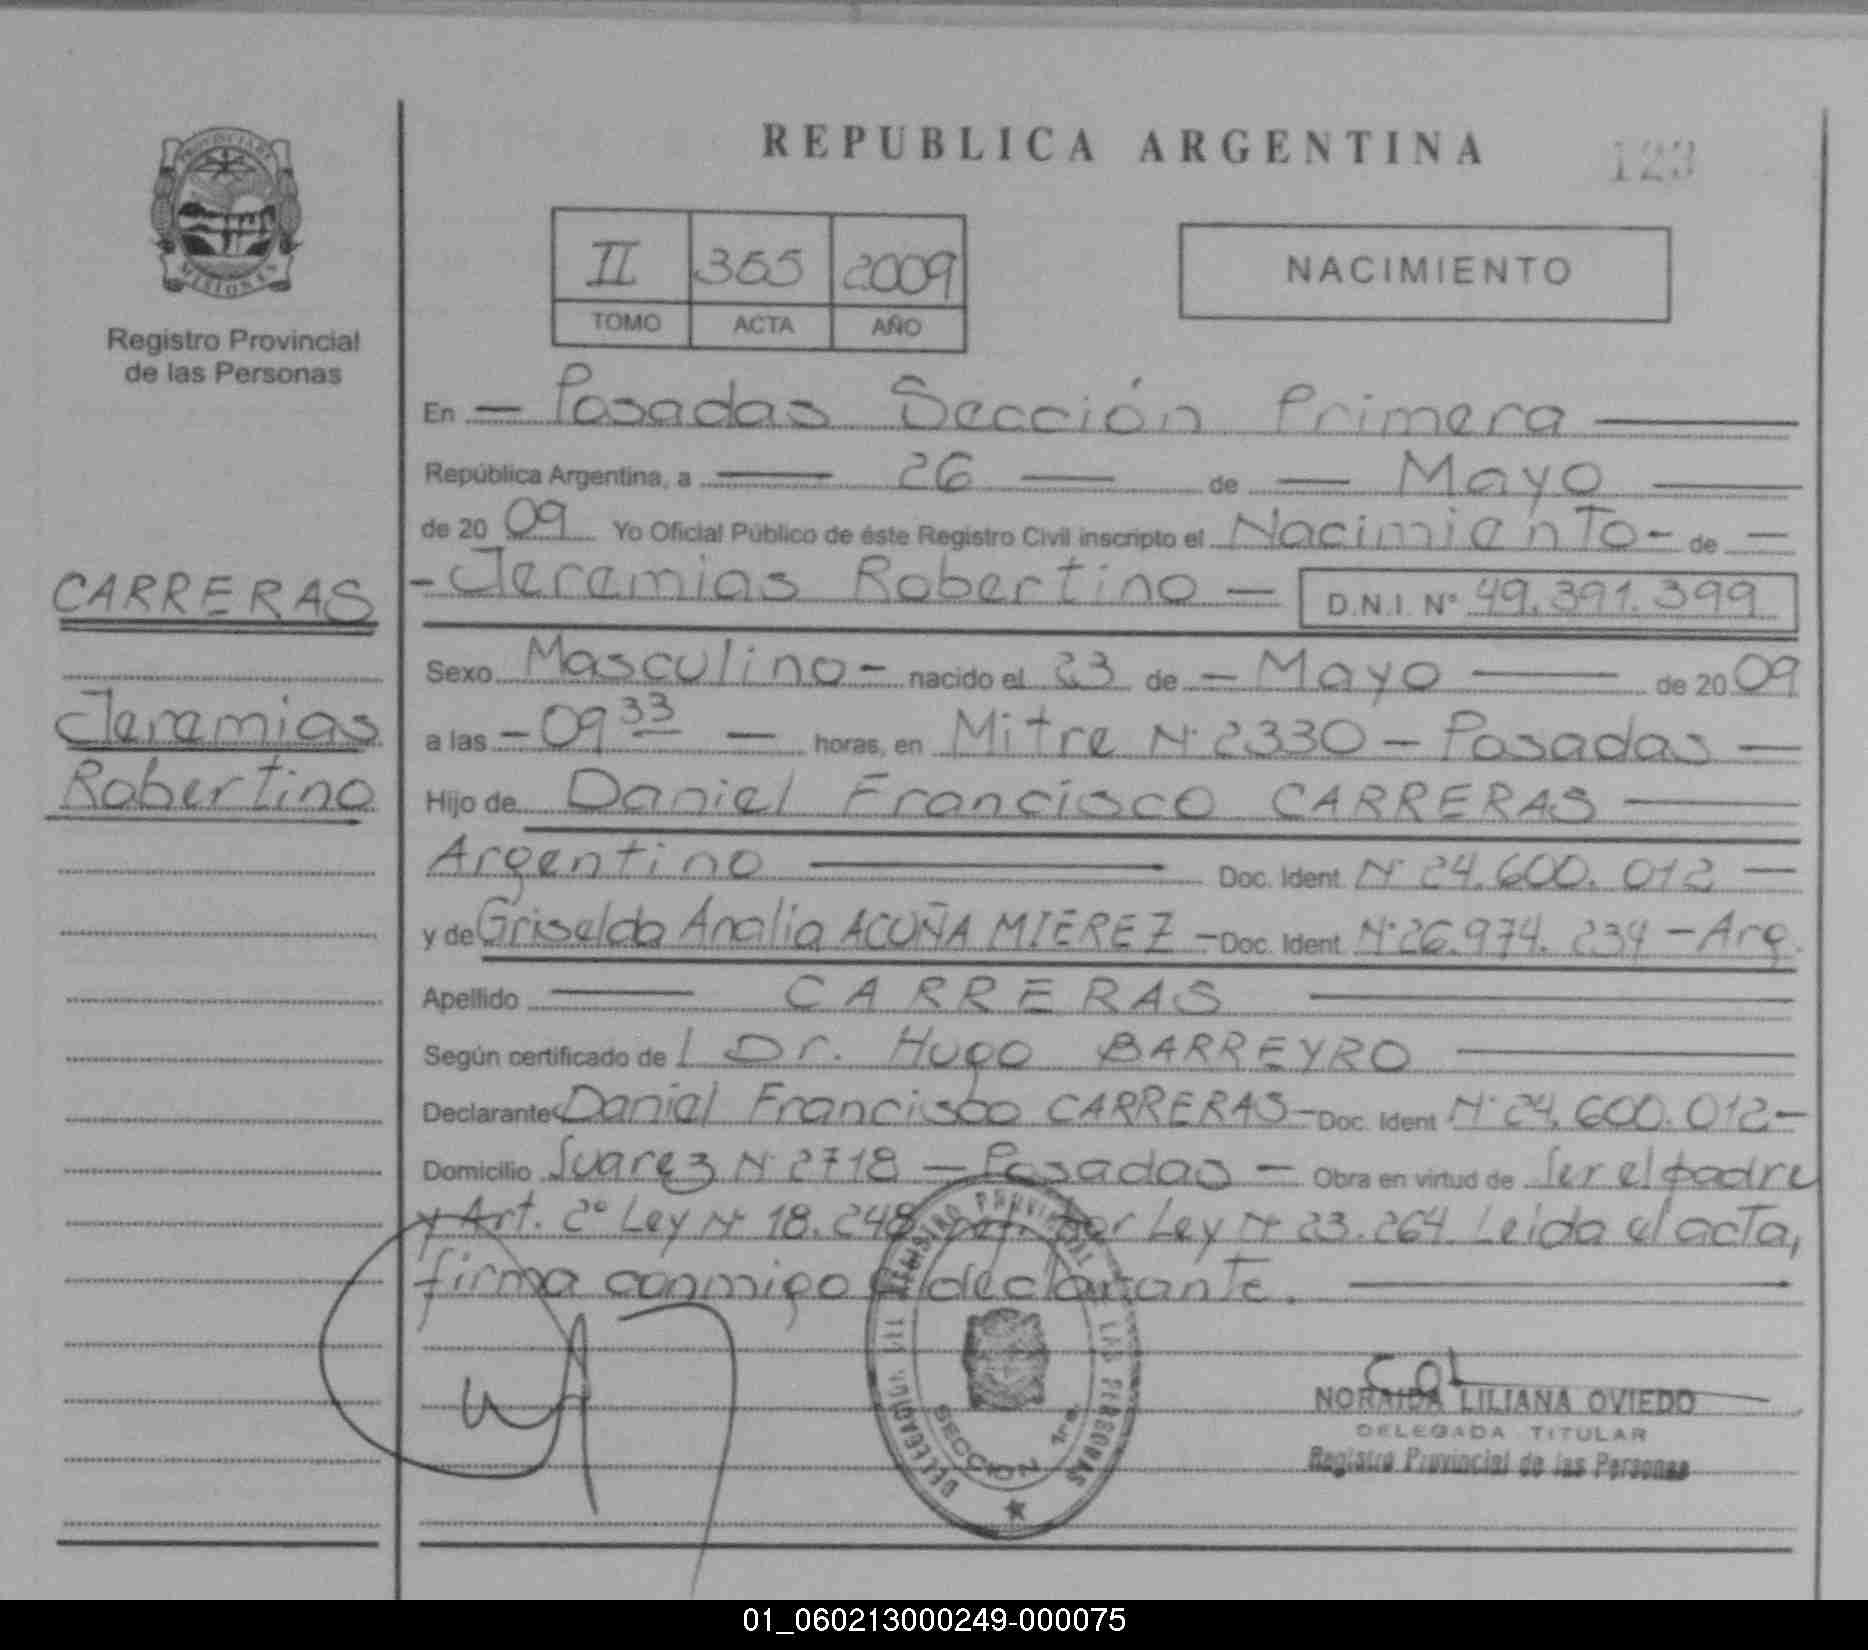 REPUBLICA ARGENTINA
123
PROVINCIA DE
MISIONES
Registro Provincial
de las Personas
II 365 2009
TOMO ACTA AÑO
NACIMIENTO
En — Posadas Sección Primera —
República Argentina, a — 26 — de — Mayo —
de 20 09 Yo Oficial Público de éste Registro Civil inscripto el Nacimiento - de —
- Jeremias Robertino — D.N.I. Nº 49.391.399
CARRERAS
Jeremias
Robertino
Sexo Masculino - nacido el 23 de — Mayo — de 20 09
a las - 09 33 — horas, en Mitre Nº 2330 - Posadas —
Hijo de Daniel Francisco CARRERAS —
Argentino — Doc. Ident Nº 24.600.012 —
y de Griselda Analia ACUÑA MIEREZ - Doc. Ident Nº 26.974.234 - Arg.
Apellido — CARRERAS —
Según certificado de l Dr. Hugo BARREYRO —
Declarante Daniel Francisco CARRERAS - Doc. Ident Nº 24.600.012 -
Domicilio Suarez Nº 2718 — Posadas — Obra en virtud de ser el padre
y Art. 2º Ley Nº 18.248 por Ley Nº 23.264. Leida el acta,
firma conmigo el declarante. —
DELEGACION DEL REGISTRO PROVINCIAL DE LAS PERSONAS
SECCION 1ra.
NORAIDA LILIANA OVIEDO
DELEGADA TITULAR
Registro Provincial de las Personas
01_060213000249-000075